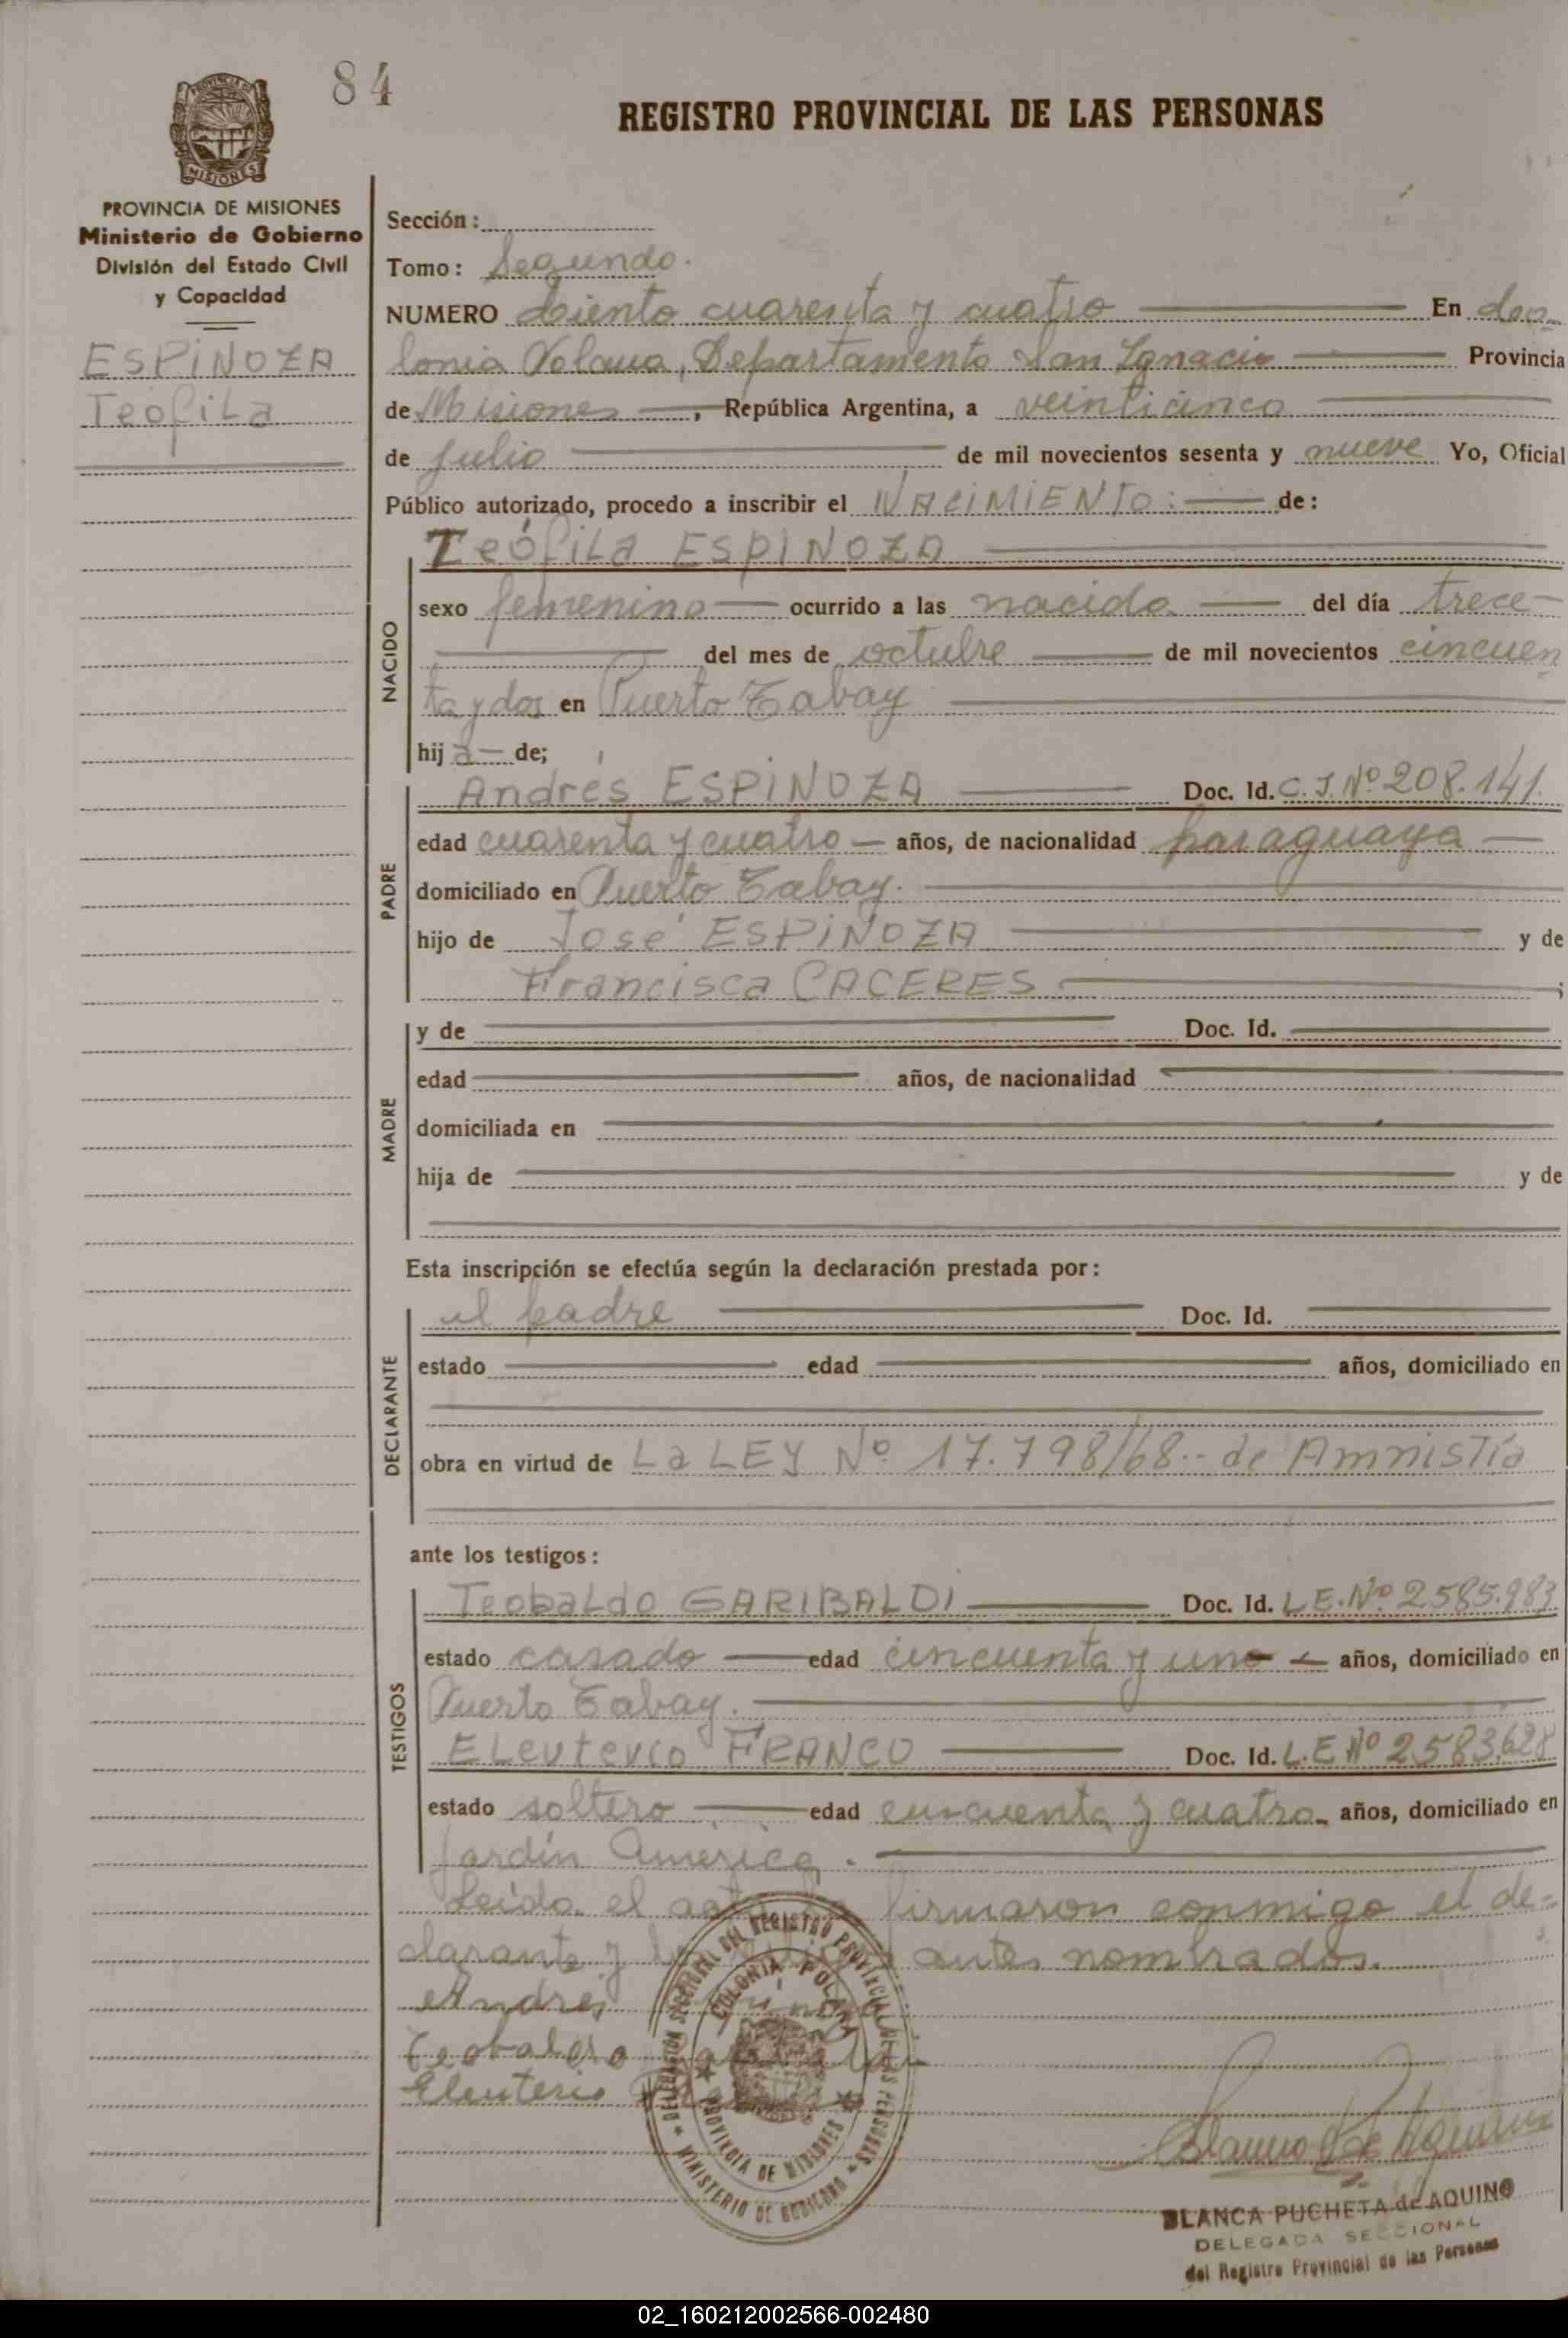 84
REGISTRO PROVINCIAL DE LAS PERSONAS
PROVINCIA DE MISIONES
Ministerio de Gobierno
División del Estado Civil
y Capacidad
ESPINOZA
Teófila
Sección:
Tomo: Segundo.
NUMERO Ciento cuarenta y cuatro En Co-
lonia Polana, Departamento San Ignacio Provincia
de Misiones, República Argentina, a veinticinco
de julio de mil novecientos sesenta y nueve Yo, Oficial
Público autorizado, procedo a inscribir el NACIMIENTO: de:
NACIDO
Teófila ESPINOZA
sexo femenino ocurrido a las nacida del día trece
del mes de octubre de mil novecientos cincuen
ta y dos en Puerto Tabay
hij a de;
PADRE
Andrés ESPINOZA Doc. Id. C.I.Nº 208.141.
edad cuarenta y cuatro años, de nacionalidad paraguaya
domiciliado en Puerto Tabay.
hijo de José ESPINOZA y de
Francisca CACERES ;
MADRE
y de Doc. Id.
edad años, de nacionalidad
domiciliada en
hija de y de
Esta inscripción se efectúa según la declaración prestada por:
DECLARANTE
el padre Doc. Id.
estado edad años, domiciliado en
obra en virtud de La LEY Nº 17.798/68.- de Amnistía
ante los testigos:
TESTIGOS
Teobaldo GARIBALDI Doc. Id. L.E.Nº 2585.983
estado casado edad cincuenta y uno años, domiciliado en
Puerto Tabay.
Eleuterio FRANCO Doc. Id. L.E Nº 2583.628
estado soltero edad cincuenta y cuatro años, domiciliado en
Jardín América.
Leída el acta firmaron conmigo el de-
clarante y antes nombrados.
Andrés
Teobaldo
Eleuterio
DELEGACIÓN SECCIONAL DEL REGISTRO PROVINCIAL DE LAS PERSONAS
COLONIA POLANA
PROVINCIA DE MISIONES
MINISTERIO DE GOBIERNO
Blanca P de Aquino
BLANCA PUCHETA de AQUINO
DELEGADA SECCIONAL
del Registro Provincial de las Personas
02_160212002566-002480